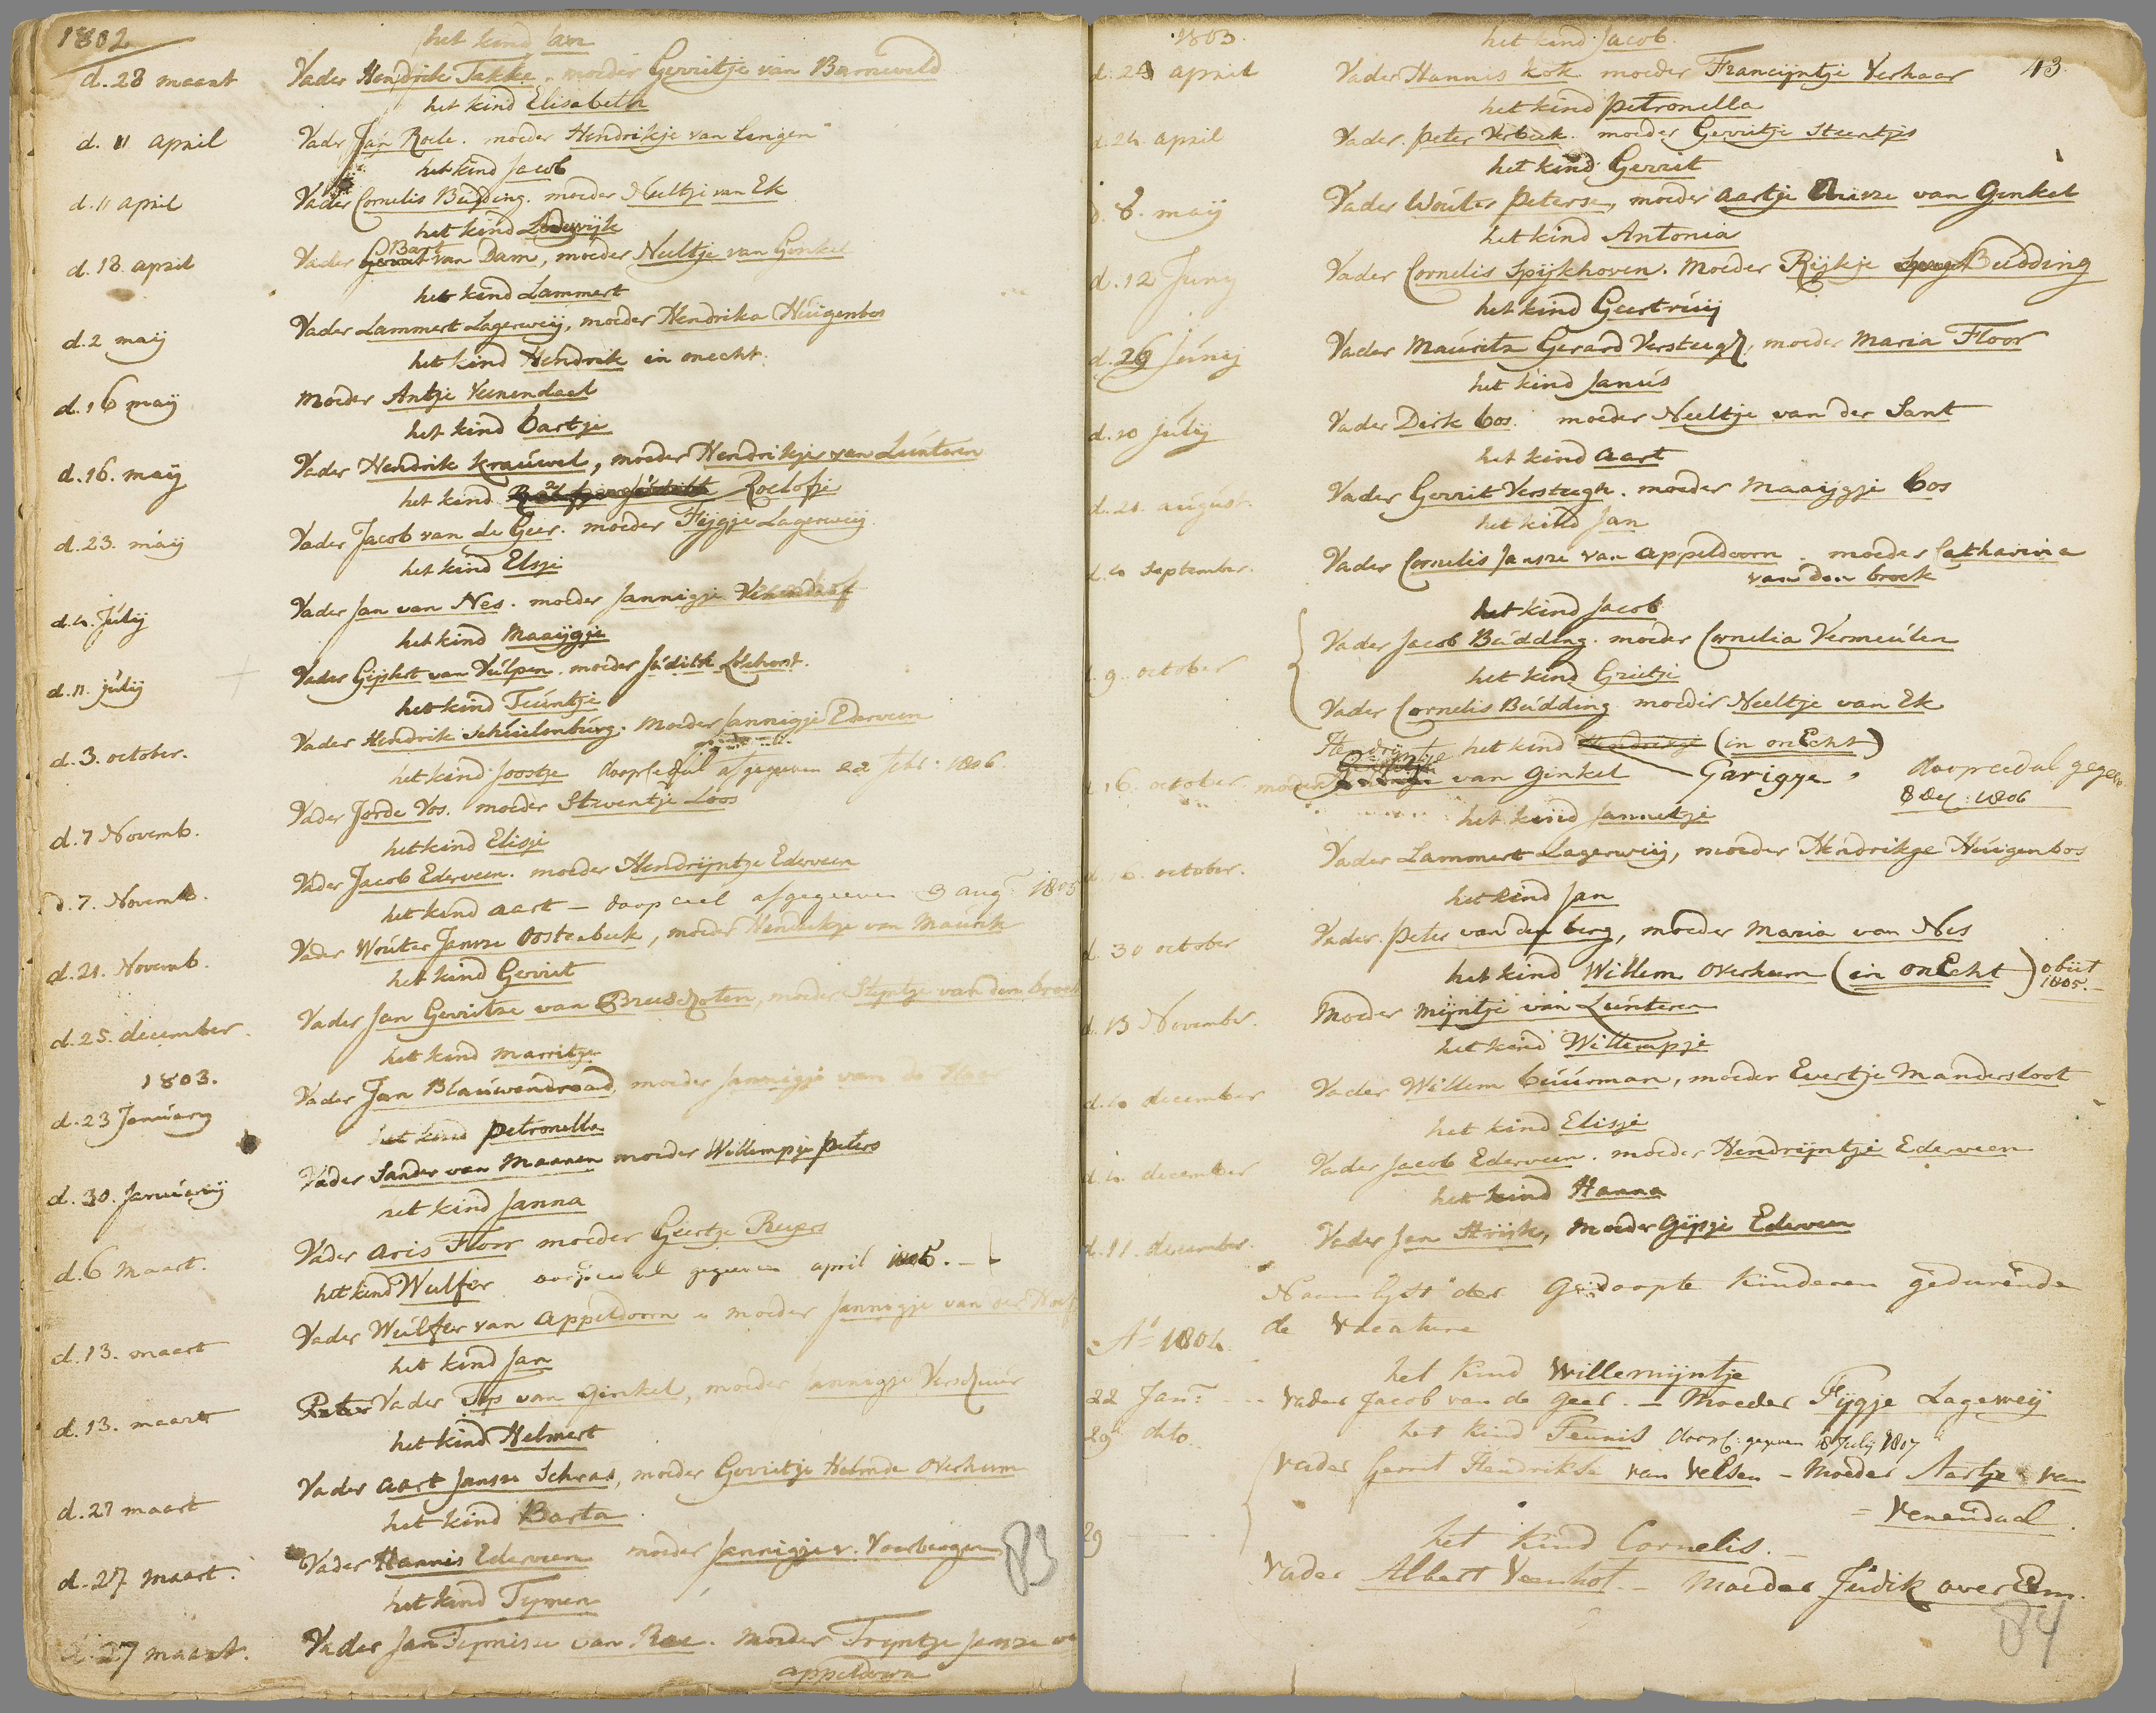 1802
het kind Jan
d. 28 maart Vader Hendrik Takke. moeder Gerritje van Barneveld
het kind Elisabeth
d. 11 april Vader Jan Roele. moeder Hendrikje van Lingen
het kind Jacob
d. 11 april Vader Cornelis Budding. moeder Neeltje van Ek
het kind Lodewijk
d. 18 april Vader Bart van Dam, moeder Neeltje van Ginkel
het kind Lammert
d. 2 maij Vader Lammert Lagerweij, moeder Hendrika Huigenbos
het kind Hendrik in onecht.
d. 16 maij moeder Antje Veenendaal
het kind bartje
d. 16. maij Vader Hendrik Krauwel, moeder Hendrikje van Lunteren
het kind Roelofje
d. 23. maij Vader Jacob van de Geer. moeder Fijgje Lagerweij
het kind Elsje
d. 4. Julij Vader Jan van Nes. moeder Jannigje
het kind Maaijgje
d. 11. julij Vader Gijsbert van Vulpen. moeder Judith Lokhorst.
het kind Teuntje
d. 3. october. Vader Hendrik Schuilenburg. moeder Jannigje Ederveen
het kind Joostje doopcedul afgegeven 22 febr. 1806.
d. 7 Novemb. Vader Jorde Vos. moeder Steventje Loos
het kind Elisje
d. 7. Novemb. Vader Jacob Ederveen. moeder Hendrijntje Ederveen
het kind aart — doop ceel afgegeven 3 aug. 1805
d. 21. Novemb. Vader Wouter Jansze Oosterbeek, moeder Hendrikje van Maurik
het kind Gerrit
d. 25. december. Vader Jan Gerritze van Breuschoten, moeder Stijntje van den broek
het kind marritje
1803.
d. 23 January Vader Jan Blauwendraad, moeder Jannigje van de
het kind petronella
d. 30. Januarij Vader Sander van Maanen moeder Willempje peters
het kind Janna
d. 6 Maart. Vader aris Floor moeder Geertje
het kind Wulfer doopceedul gegeeven april
d. 13. maart Vader Wulfer van appeldoorn moeder Jannigje van der
het kind Jan
d. 13. maart Peter Vader Top van Ginkel, moeder Jannigje Verschuur
het kind Helmert
d. 27 maart Vader aart Jansze Schras, moeder Gerritje Helmde overheem
het kind Barta
d. 27 maart. Vader Hannis Ederveen moeder Jannigje v. Voorburgen
83
het kind Tijmen
d. 27 maart. Vader Jan Tijmisze van Ree. moeder Trijntje Jansze
appeldoorn
1803.
43
het kind Jacob.
april Vader Hannis Kok moeder Francijntje Verhaar
het kind petronella
d. 24. april Vader. peter Verbeek. moeder Gerritje Steentjes
het kind Gerrit
d. 8. maij Vader Wouter peterse, moeder aartje van Ginkel
het kind Antonia
d. 12 Junij Vader Cornelis Spijkhoven. moeder Rijkje Budding
het kind Geertruij
d. 26 Junij Vader Mauritz Gerard Versteegh, moeder Maria Floor
het kind Janus
d. 10 Julij Vader Dirk bos. moeder Neeltje van der Sant
het kind aart
d. 21. august. Vader Gerrit Versteegh. moeder Maaijgje bos
het kind Jan
d. 4 September. Vader Cornelis Jansze van appeldoorn. moeder Catharina
van den broek
het kind Jacob
Vader Jacob Budding. moeder Cornelia Vermeulen
9. october
het kind Grietje
Vader Cornelis Budding moeder Neeltje van Ek
Hendrijntje het kind Hendrikje (in onEcht)
16. october moeder van Ginkel Garigje. doopceedul gegeven
8 Dec: 1806
het kind Jannetje
october. Vader Lammert Lagerweij, moeder Hendrikje Huigenbos
het kind Jan
d. 30 october Vader. peter van den berg, moeder Maria van Nes
het kind Willem Overheem (in onEcht) obiit
1805.
d. 13 November. Moeder Mijntje van Lunteren
het kind Willempje
d. 4 december Vader Willem buurman, moeder Evertje Mandersloot
het kind Elisje
d. 4. december Vader Jacob Ederveen. moeder Hendrijntje Ederveen
het kind Hanna
d. 11. december. Vader Jan Strijk, moeder Gijsje Ederveen
Naamlijst der Gedoopte kinderen gedurende
de vacature
Ao 1804.
het kind Willemijntje
22 Jan: Vader Jacob van de Geer. — Moeder Fijgje Lageweij
29 dito het kind Teunis doopc: gegeven 18 Julij 1807
Vader Gerrit Hendrikse van Velsen — Moeder Aartje van
Venendaal.
29 het kind Cornelis. —
Vader Albert Veenhof — Moeder Judik over Eem.
84